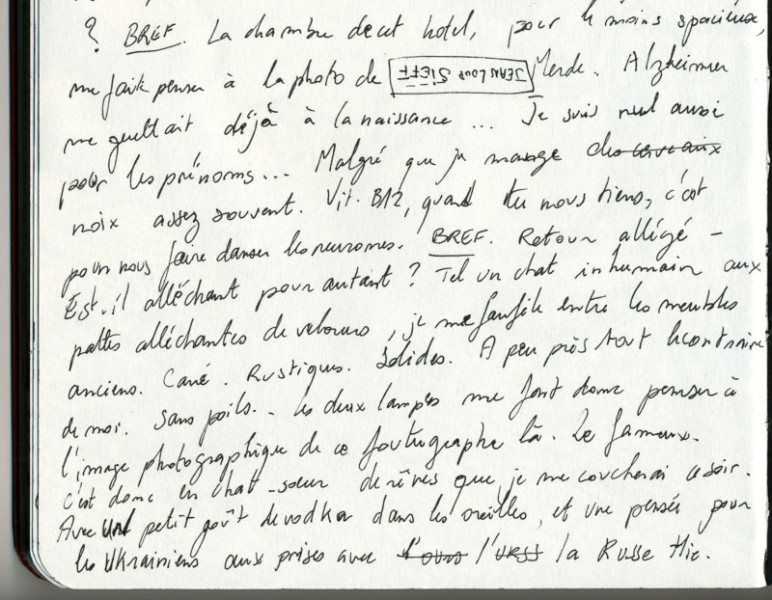 ? BREF. La chambre de cet hotel, pour le moins spacieuse,
me fait penser à la photo de JEAN LOUP SIEFF Merde. Alzheimer
me guettait déjà à la naissance ... Je suis nul aussi
pour les prénoms... Malgré que je mange des cerveaux
noix assez souvent. Vit. B12, quand tu nous tiens, c'est
pour nous faire danser les neurones. BREF. Retour allégé -
Est-il alléchant pour autant ? Tel un chat inhumain aux
pattes alléchantes de velours, je me faufile entre les meubles
anciens. Carré. Rustiques. Solides. A peu près tout le contraire
de moi. Sans poils... Les deux lampes me font donc penser à
l'image photographique de ce foutugraphe là. Le fameux.
C'est donc en chat-soeur de rêves que je me coucherai ce soir.
Avec un petit goût de vodka dans les oreilles, et une pensée pour
les Ukrainiens aux prises avec l'ours l'URSS la Russe Hic.